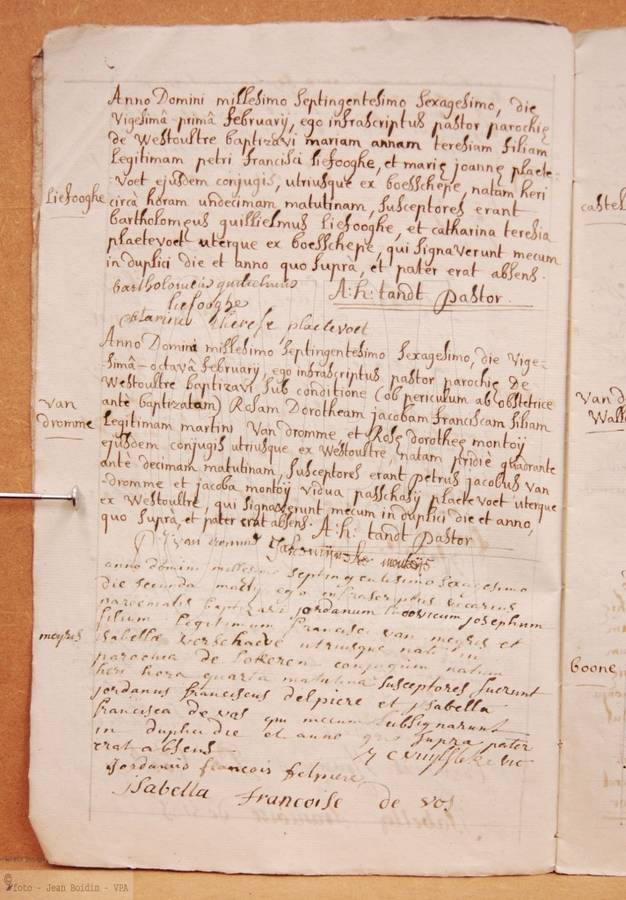 Anno Domini millesimo septingentesimo sexagesimo, die
vigesimâ-primâ februarij, ego infrascriptus pastor parochię
de Westoultre baptizavi mariam annam teresiam filiam
Legitimam petri francisci Liefooghe, et marię joannę plaete-
voet ejusdem conjugis, utriusque ex boesschepe, natam heri
Liefooghe
circa horam undecimam matutinam, susceptores erant
bartholomęus guillielmus Liefooghe, et catharina teresia
plaetevoet uterque ex boesschepe, qui signaverunt mecum
in duplici die et anno quo suprà, et pater erat absens.
bartholomeus
A: h: tandt pastor.
liefooghe
Therese plaetevoet
Anno Domini millesimo septingentesimo sexagesimo, die vige-
simâ-octavâ februarij, ego infrascriptus pastor parochię de
Westoultre baptizavi sub conditione (ob periculum ab obstetrice
antè baptizatam) Rosam Dorotheam jacobam franciscam filiam
van
dromme
Legitimam martini van dromme et Rosę dorotheę montoij
ejusdem conjugis utriusque ex Westoultre, natam pridiè quadrante
antè decimam matutinam, susceptores erant petrus jacobus van
-dromme et jacoba montoij vidua passchasij plaetevoet uterque
ex Westoultre, qui signaverunt mecum in duplici die et anno,
quo suprà, et pater erat absens. A: h: tandt pastor
van dromme
anno domini millesimo septingentesimo sexagesimo
die secunda martij ego infrascriptus vicarius
baptizavi jordanum ludovicum josephum
filium legitimum francisci van meyris et
meyris
isabellæ verschaeve utriusque nati in
parochia de lokeren conjugum natum
heri hora quarta matutina susceptores fuerunt
jordanus franciscus delpiere et isabella
francisca de vos qui mecum subsignarunt
in duplici die et anno quo supra pater
erat absens
Jordanus francois delpiere
isabella francoise de vos
castel
van d
Walle
boone
©foto - Jean Boidin - VPA